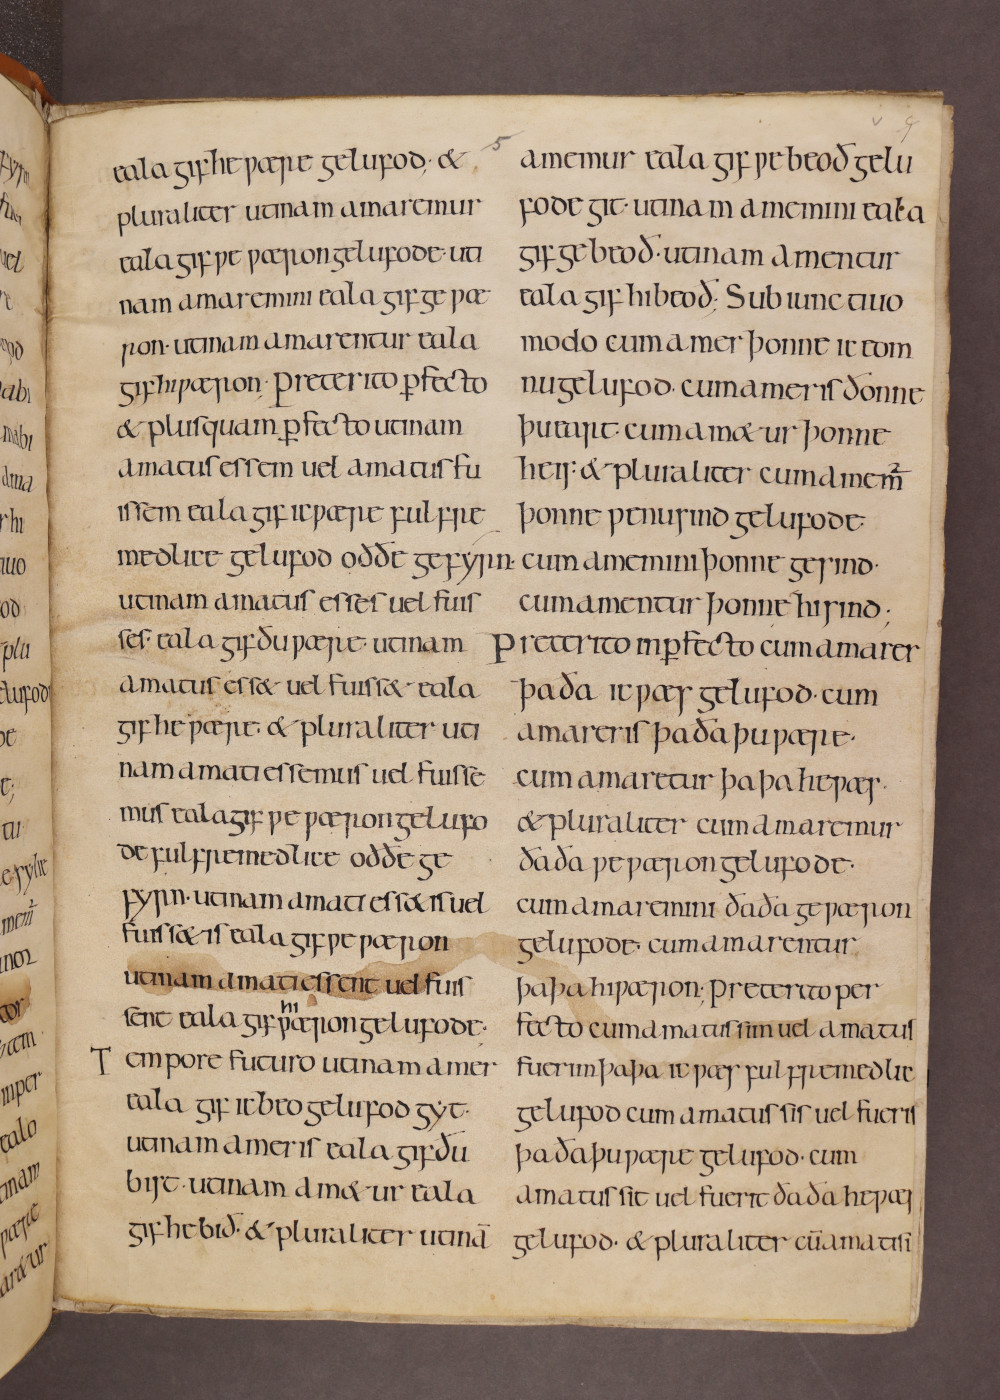 eala gif he pære gelufod; &
pluraliter utinam amaremur
eala gif ƿe ƿæron gelufode· uti
nam amaremini eala gif ge ƿæ
ron· utinam amarentur eala
gif hi ƿæron; Preterito ꝑfecto
& plusquam ꝑfecto utinam
amatus essem uel amatus fu
issem eala gif ic ƿære fulfre
medlice gelufod oððe gefyrn·
utinam amatus esses uel fuis
ses· eala gif ðu ƿære· utinam
amatus ess& uel fuiss& eala
gif he ƿære· & pluraliter uti
nam amati essemus uel fuisse
mus eala gif ƿe ƿæron gelufo
de fulfremedlice oððe ge
fyrn· utinam amati ess&is uel
fuiss&is eala gif ƿe ƿæron
utinam amati essent uel fuis
sent eala gif hi ƿæron gelufode·
Tempore futuro utinam amer
eala gif ic beo gelufod gyt·
utinam ameris eala gif ðu
bist· utinam am&ur eala
gif he bið· & pluraliter utinā
5
v 9
amemur eala gif ƿe beoð gelu
fode git· utinam amemini eala
gif ge beoð· utinam amentur
eala gif hi beoð; Subiunctiuo
modo cum amer þonne ic eom
nu gelufod· cum ameris ðonne
þu eart· cum am&ur þonne
he is: & pluraliter cum amem̄
þonne ƿe nu sind gelufode·
cum amemini þonne ge sind·
cum amentur þonne hi sind;
Preterito inꝑfecto cum amarer
þa ða ic ƿæs gelufod· cum
amareris þa ða þu ƿære·
cum amaretur þa þa he ƿæs·
& pluraliter cum amaremur
ða ða ƿe ƿæron gelufode·
cum amaremini ða ða ge ƿæron
gelufode· cum amarentur
þa þa hi ƿæron; Preterito per
fecto cum amatus sim uel amatus
fuerim þa þa ic ƿæs fulfremedlic
gelufod cum amatus sis uel fueris
þa ða þu ƿære gelufod· cum
amatus sit uel fuerit ða ða he ƿæs
gelufod· & pluraliter cū amati si